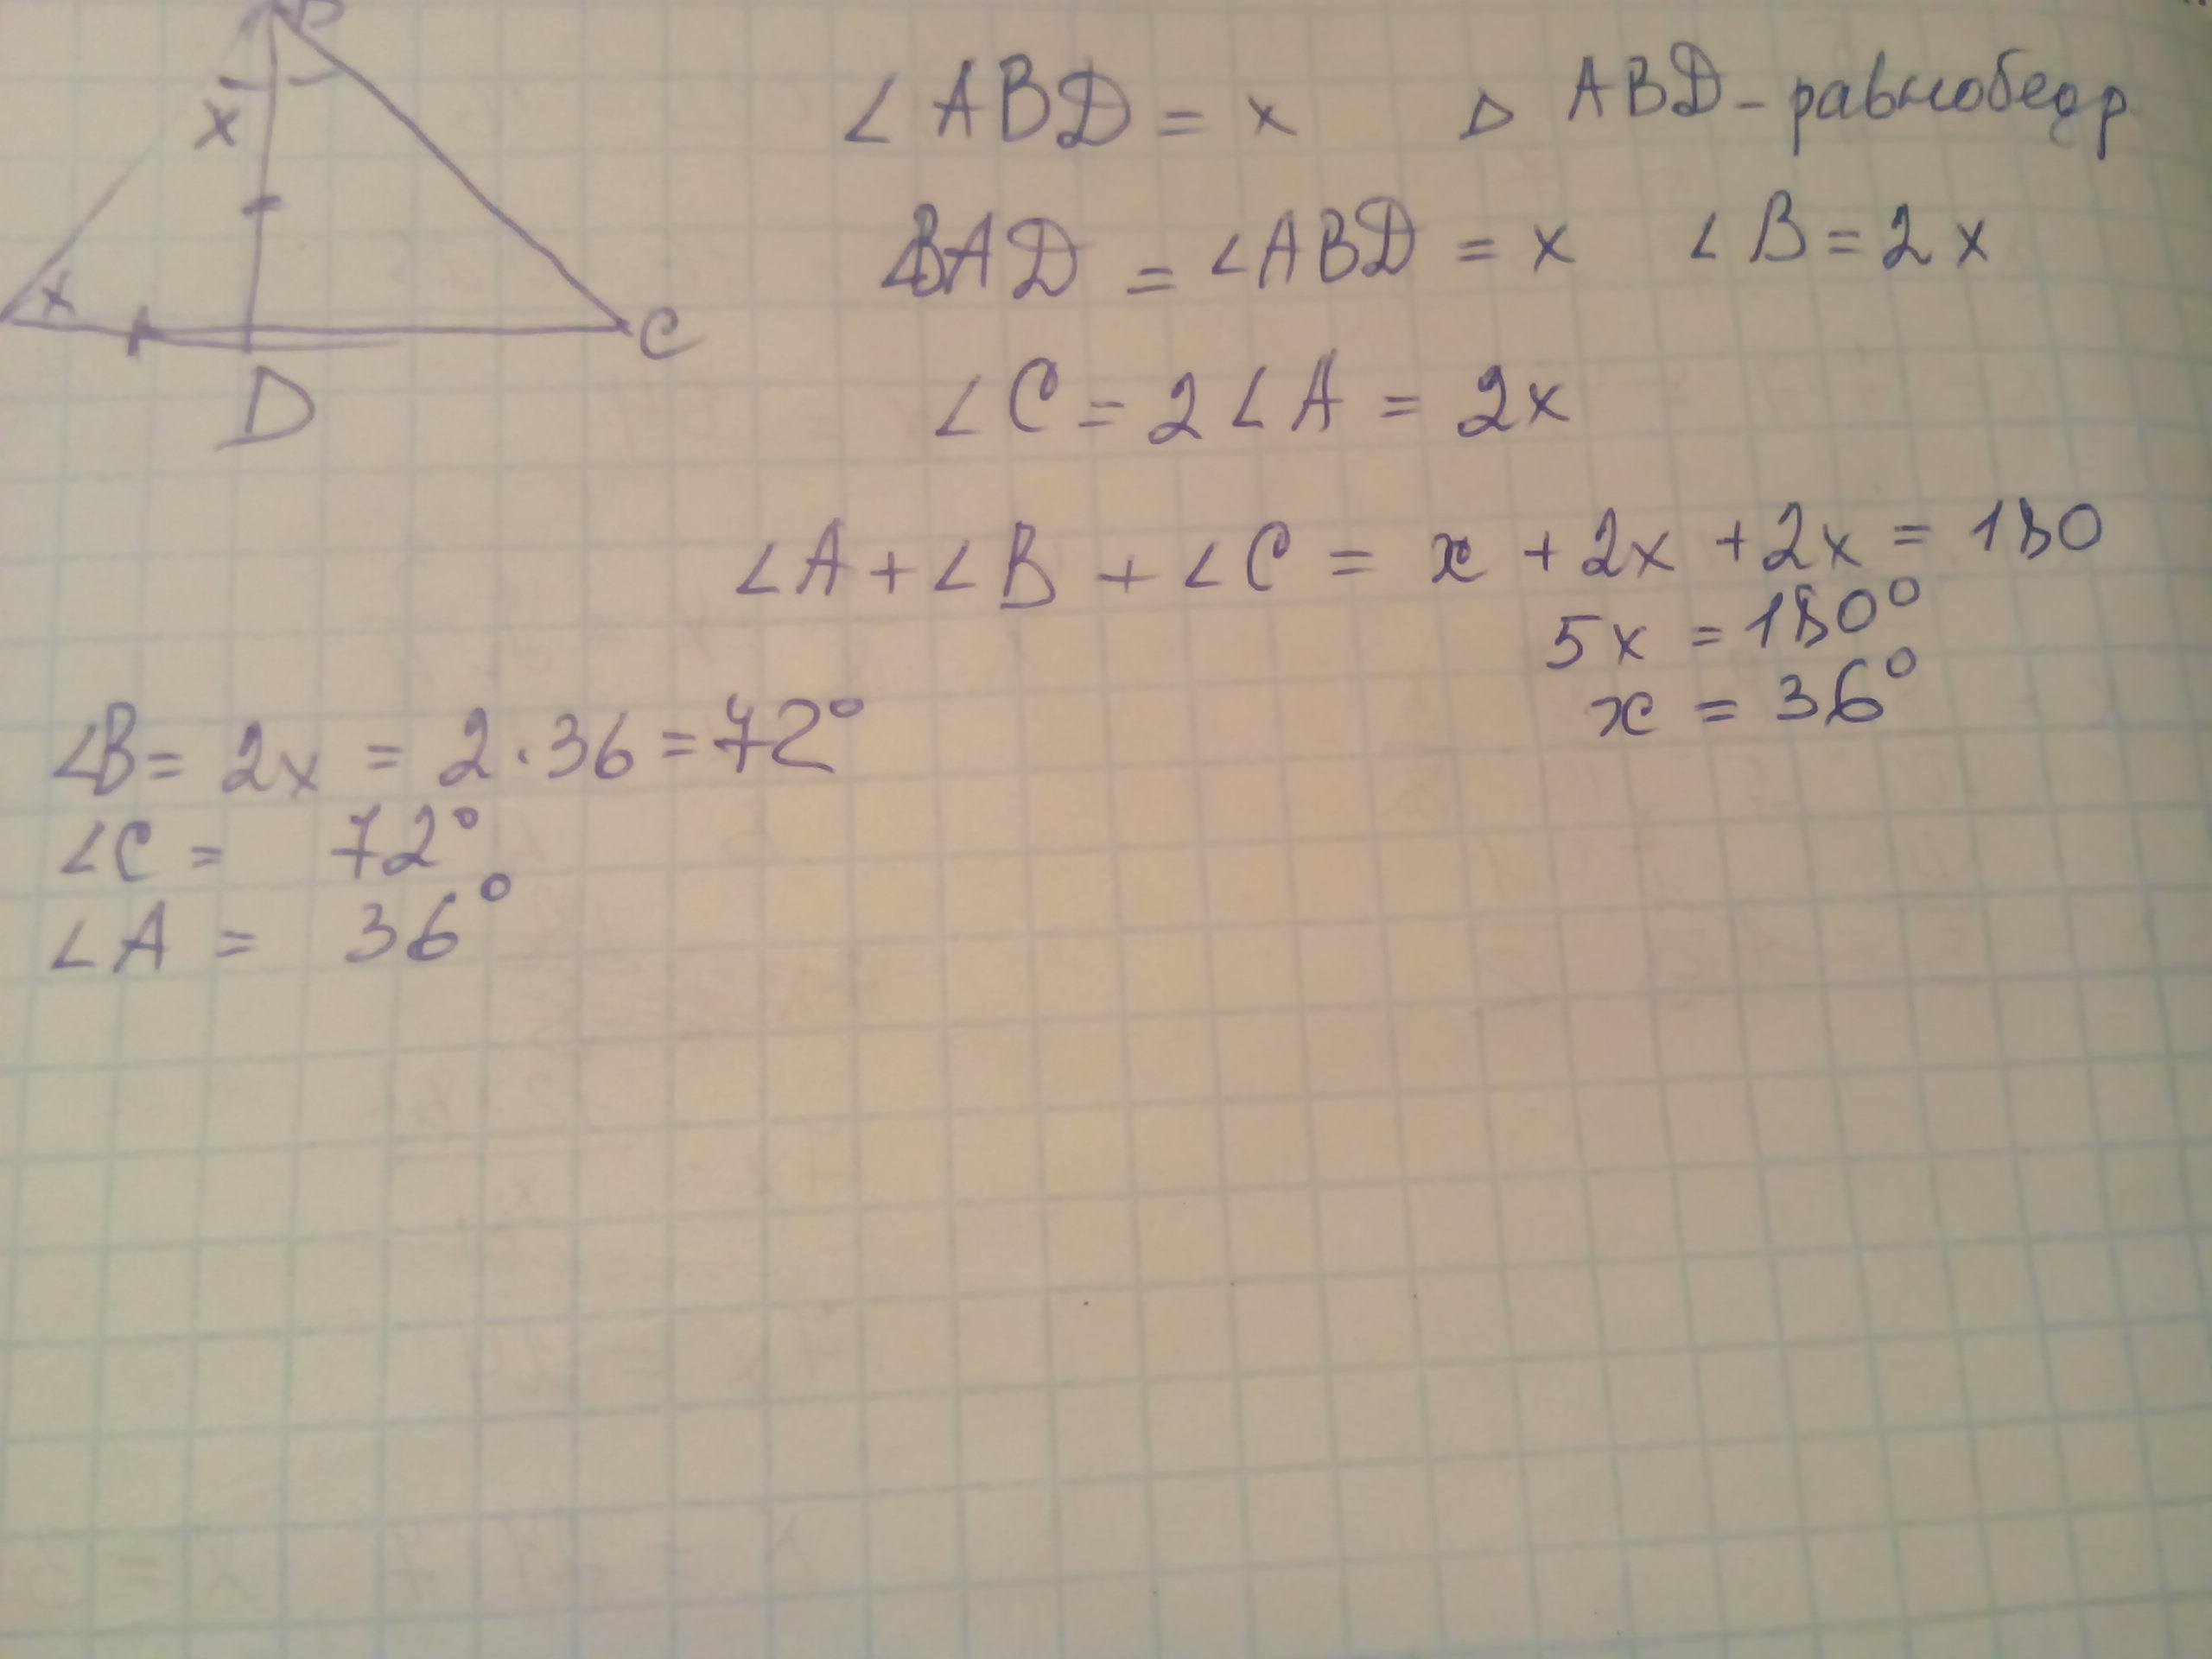 B
x
x
C
D
∠ABD = x △ ABD - равнобедр
∠BAD = ∠ABD = x ∠B = 2x
∠C = 2∠A = 2x
∠A + ∠B + ∠C = x + 2x + 2x = 180
5x = 180°
x = 36°
∠B = 2x = 2·36 = 72°
∠C = 72°
∠A = 36°